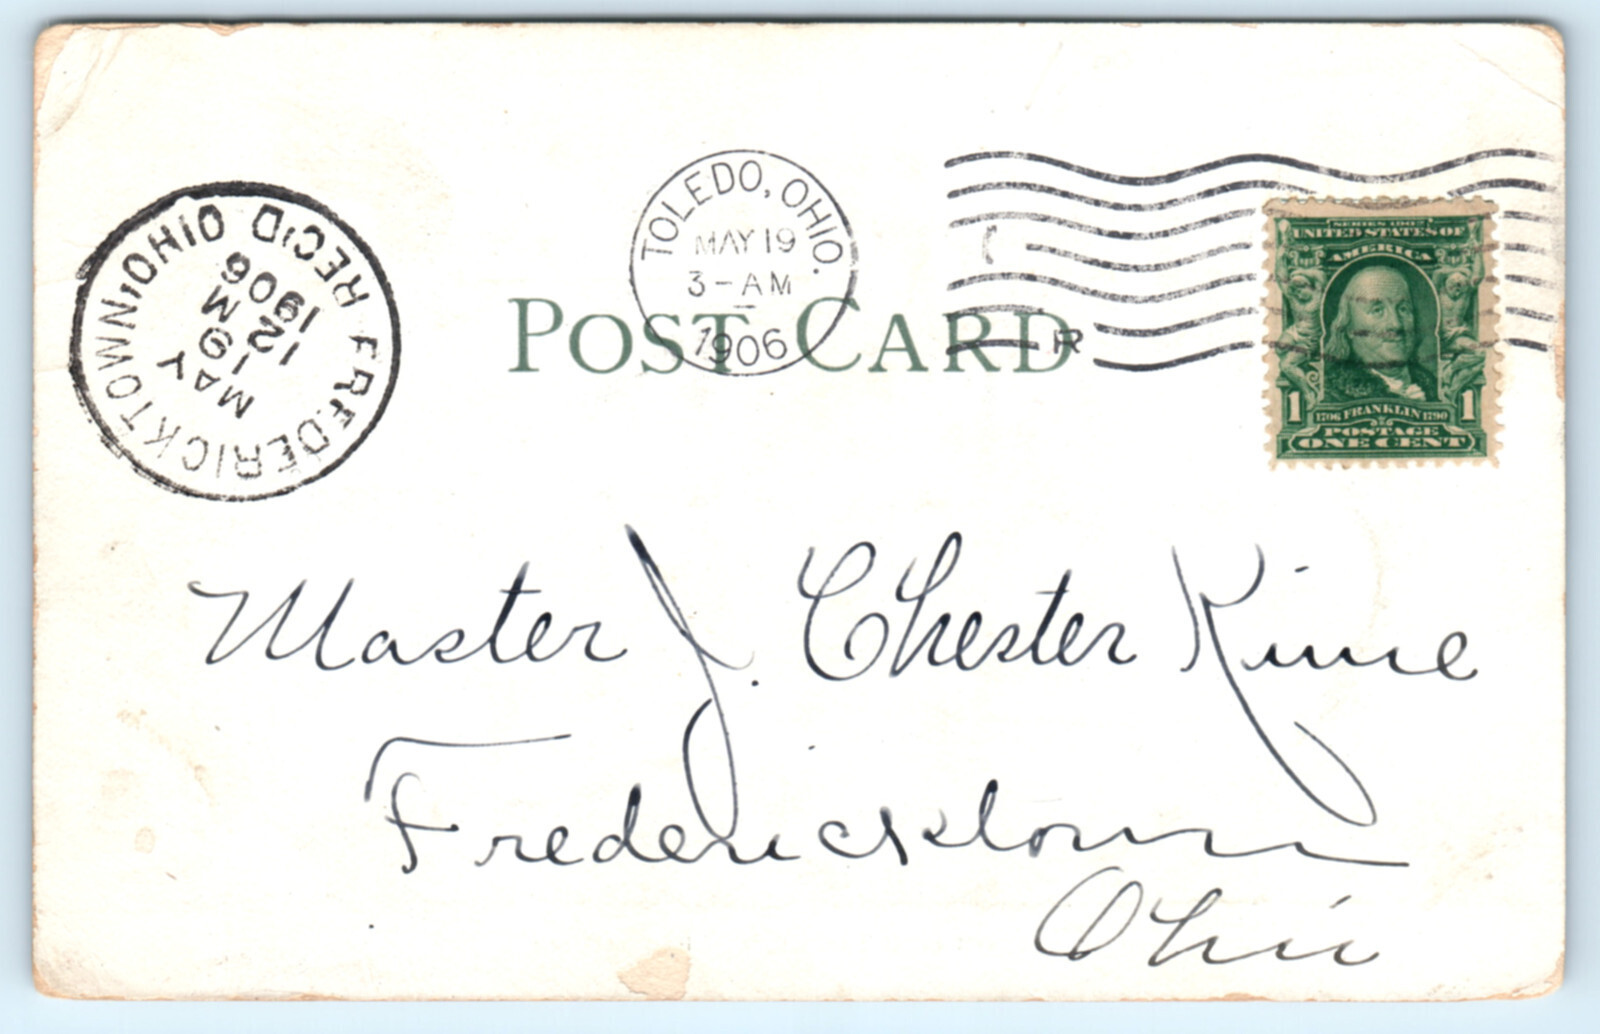 FREDERICKTOWN, OHIO REC'D
MAY
19
12 M
1906
TOLEDO, OHIO.
MAY 19
3-AM
1906
R
POST CARD
SERIES 1902
UNITED STATES OF
AMERICA
1 1706 FRANKLIN 1790 1
POSTAGE
ONE CENT
Master J. Chester Kime
Fredericktown
Ohio